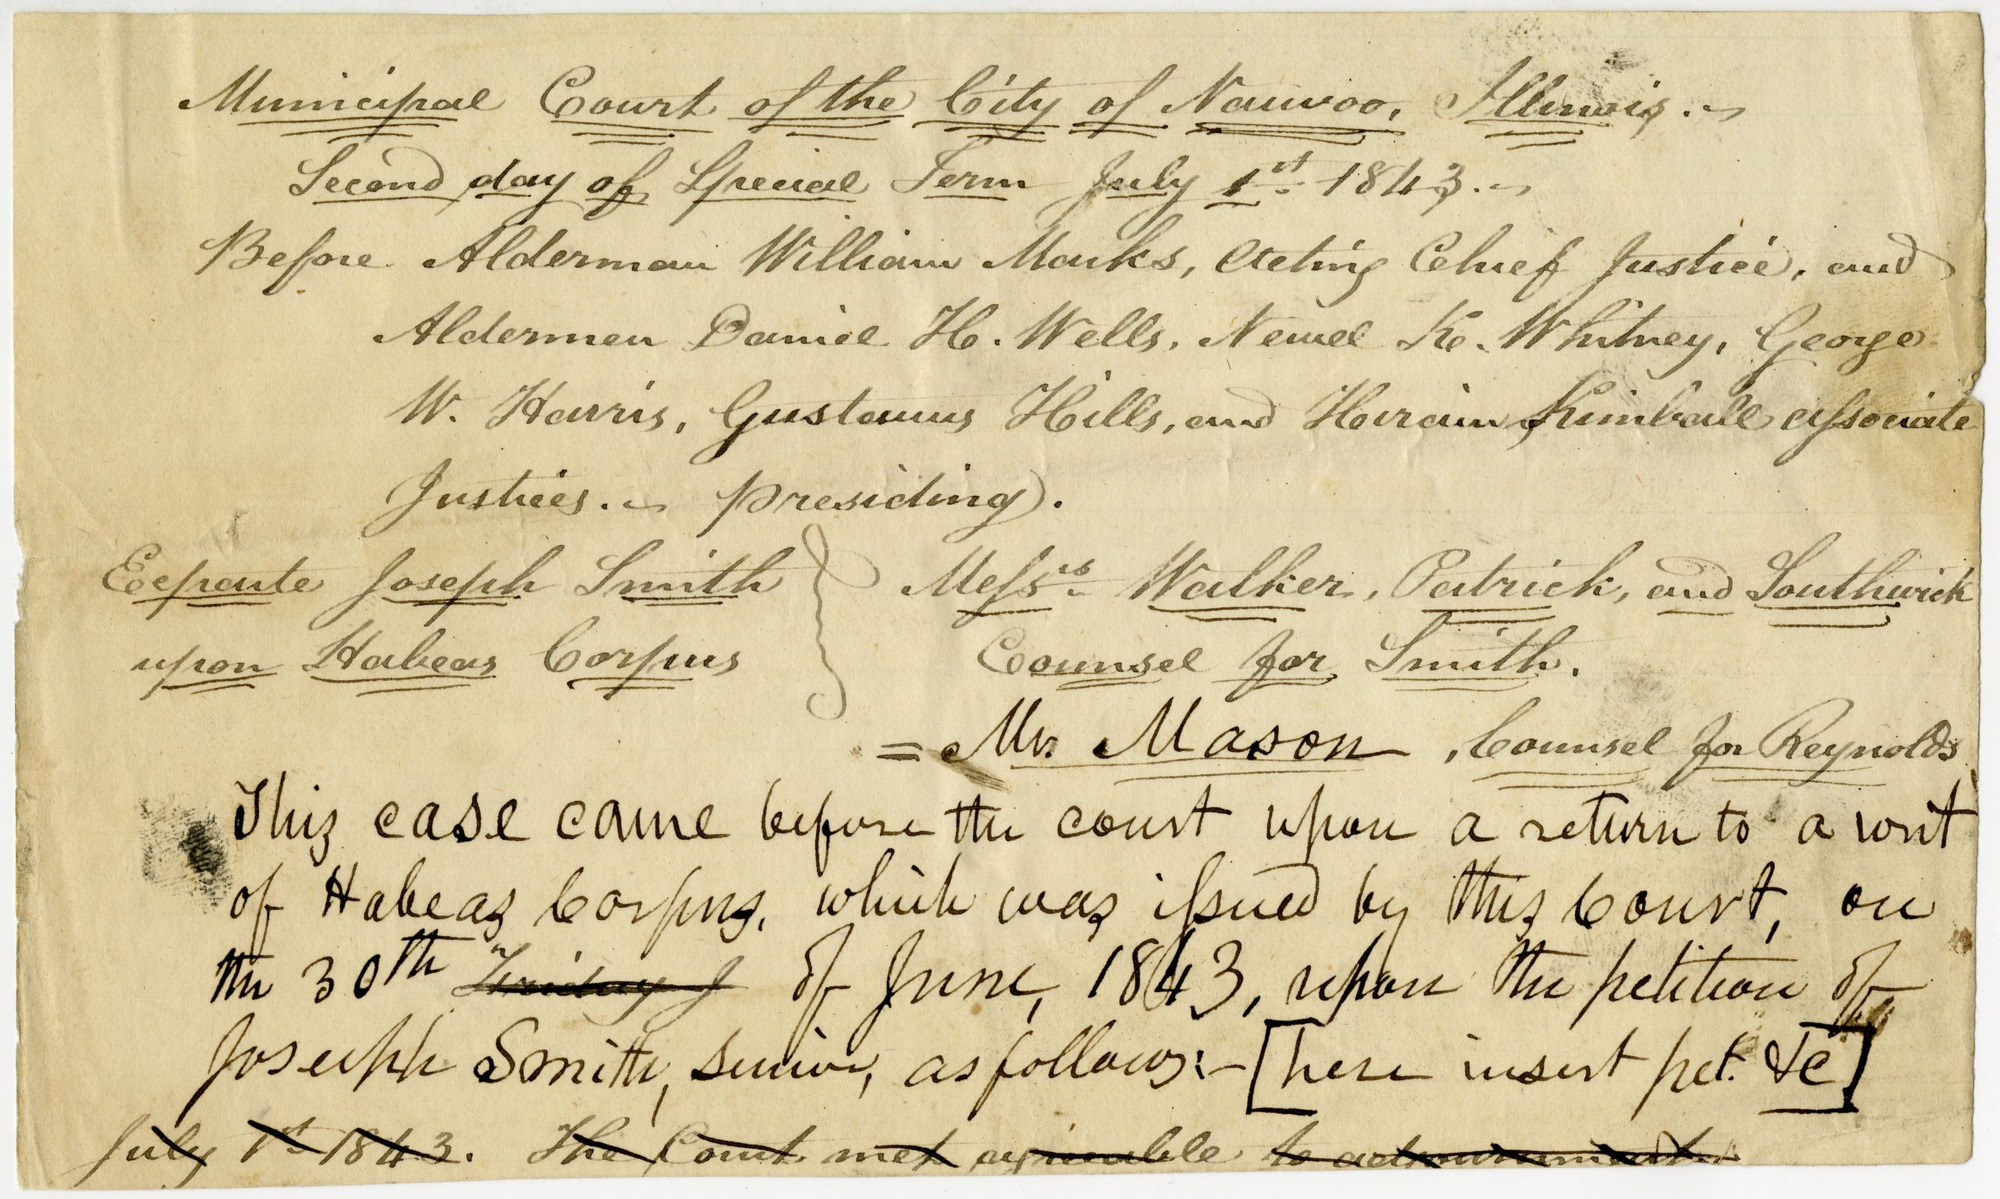 Municipal Court of the City of Nauvoo, Illinois.
Second day of Special Term July 1st 1843.
Before Alderman William Marks, Acting Chief Justice, and
Aldermen Daniel H. Wells, Newel K. Whitney, George
W. Harris, Gustavus Hills, and Hiram Kimball associate
Justices. presiding.
Exparte Joseph Smith
upon Habeas Corpus
Messrs. Walker, Patrick, and Southwick
Counsel for Smith.
= Mr. Mason, Counsel for Reynolds
This case came before the court upon a return to a writ
of Habeas Corpus, which was issued by this Court, on
the 30th Friday J of June, 1843, upon the petition of
Joseph Smith, senior, as follows:- [here insert pet. &c]
July 1st 1843. The Court met agreeable to adjournment